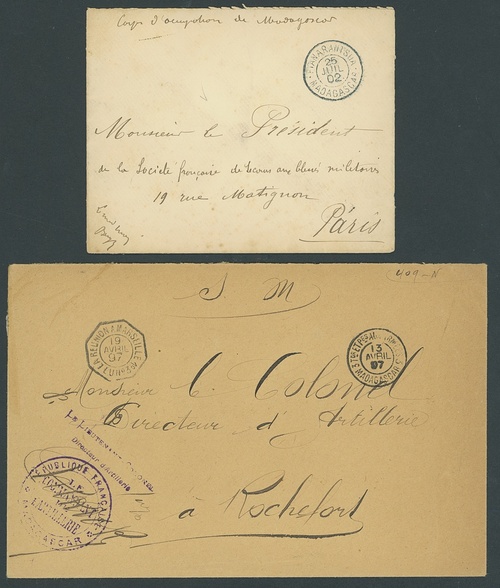 Corps d'occupation de Madagascar
FIANARANTSOA
25
JUIL
02
MADAGASCAR
Monsieur le Président
de la Société française de secours aux blessés militaires
19 rue Matignon
Paris
409-N
S M
LA REUNION A MARSEILLE
19
AVRIL
97
13
AVRIL
97
MADAGASCAR
Monsieur le Colonel
Directeur d'Artillerie
LE LIEUTENANT-COLONEL
Directeur d'Artillerie
REPUBLIQUE FRANÇAISE
MADAGASCAR
à Rochefort